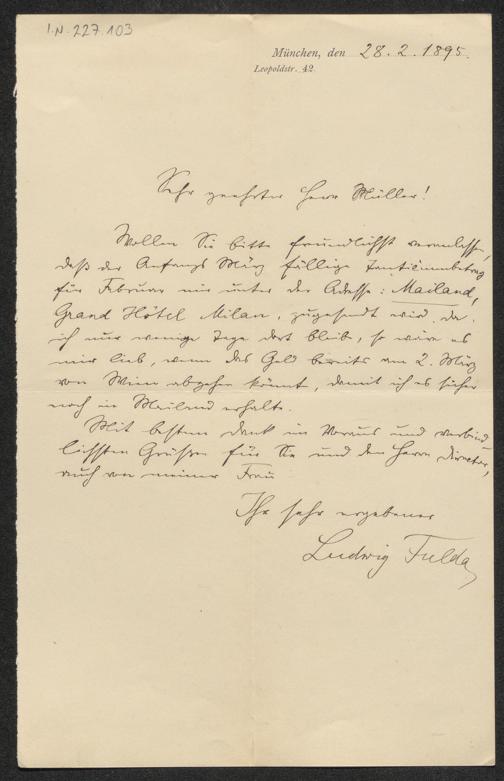 I.N. 227.103
München, den 28.2.1895.
Leopoldstr. 42.
Sehr geehrter Herr Müller!
Wollen Sie bitte freundlichst veranlassen,
daß der Anfangs März fällige Tantièmenbetrag
für Februar mir unter der Adresse: Mailand,
Grand Hôtel Milan, zugesandt wird. Da
ich nur wenige Tage dort bleibe, so wäre es
mir lieb, wenn das Geld bereits am 2. März
von Wien abgehen könnte, damit ich es sicher
noch in Mailand erhalte.
Mit bestem Dank im Voraus und verbind-
lichsten Grüßen für Sie und den Herrn Director,
auch von meiner Frau
Ihr sehr ergebener
Ludwig Fulda